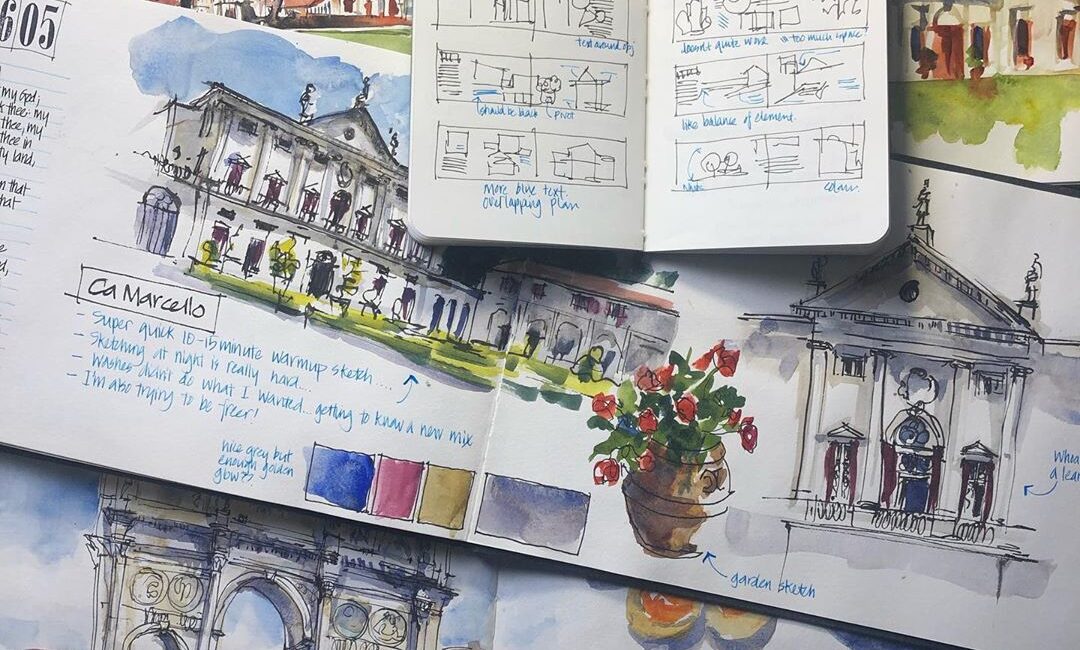 605
my God;
thee: my
thee, my
thee in
ty land,
on that
that
text around obj
should be back
pivot
More blue text.
overlapping plan
doesn't quite work
too much space
like balance of element.
Ca Marcello
- Super quick 10-15 minute warmup sketch....
- Sketching at night is really hard...
- Washes didn't do what I wanted... getting to know a new mix
- I'm also trying to be freer!
nice grey but
enough golden
glow??
garden sketch
a lear